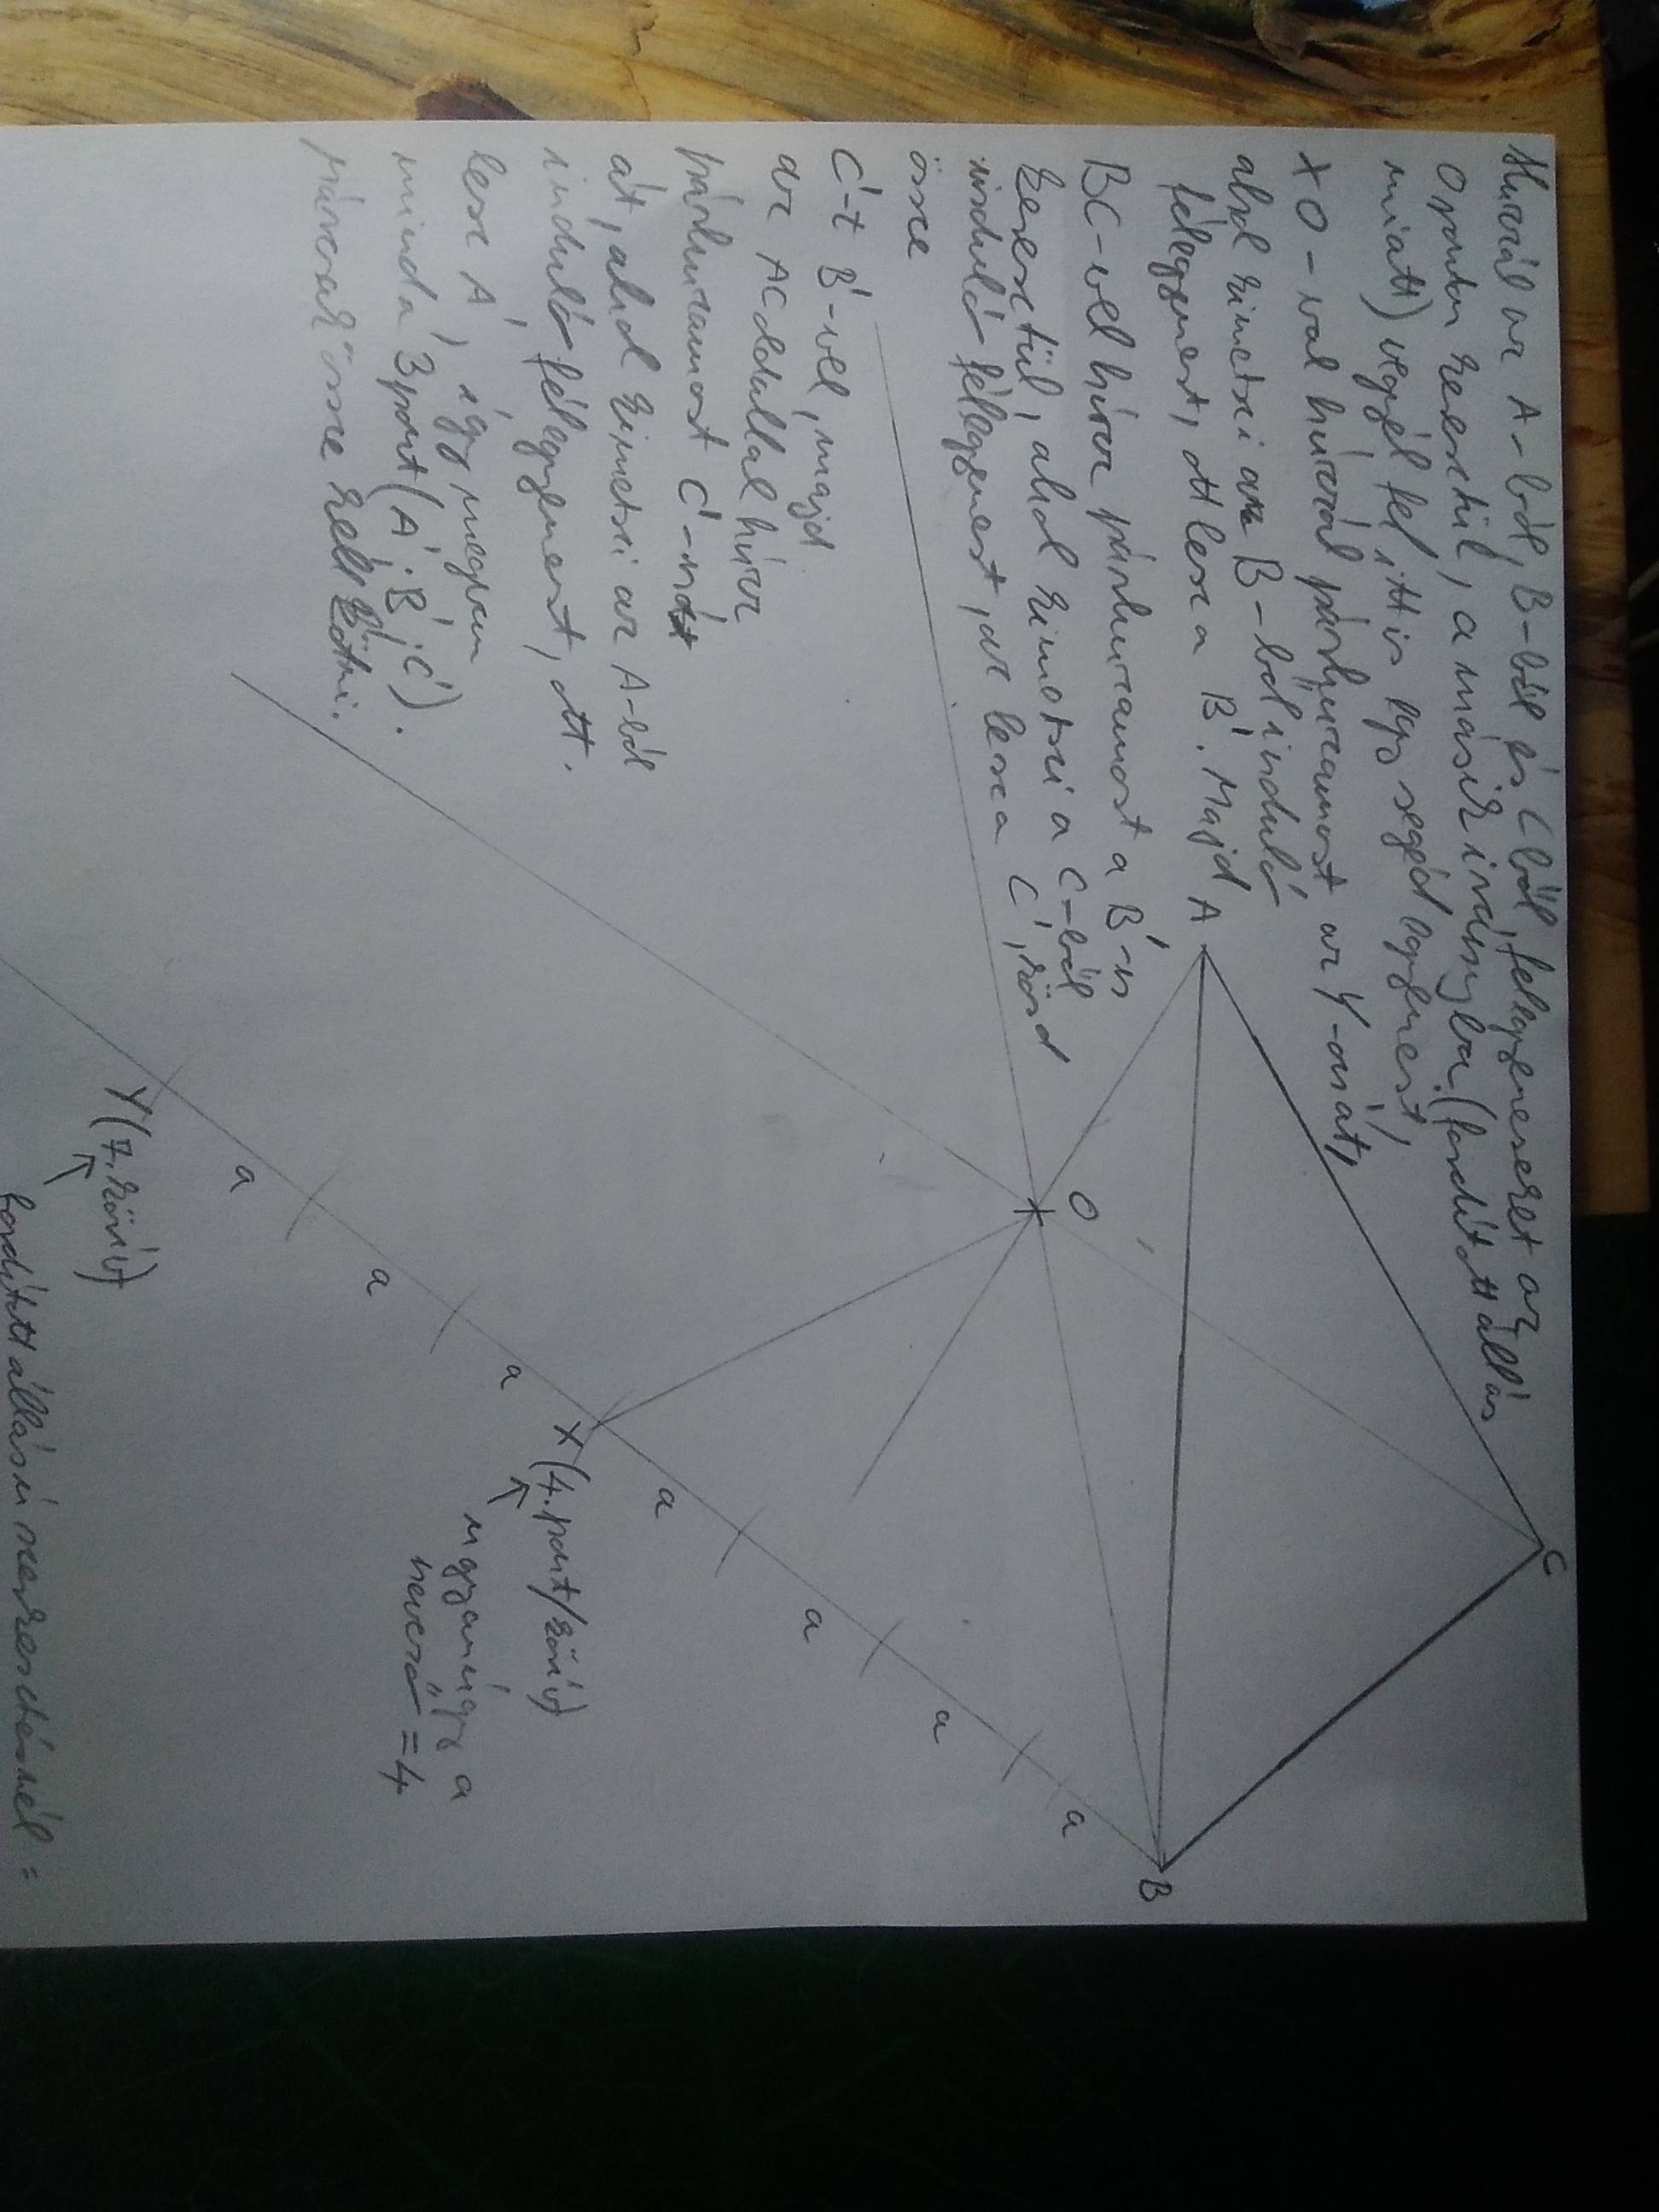 Húzzál az A-ból, B-ből és C-ből, félegyeneseket az
O ponton keresztül, a másik irányba. (fordított állás
miatt) vegyél fel itt is egy segéd egyenest,
XO-val húzzál párhuzamost az Y-on át,
ahol kimetszi a B-ből induló
félegyenest, ott lesz a B'. Majd
BC-vel húzz párhuzamost a B'-n
keresztül, ahol kimetszi a C-ből
induló félegyenest, az lesz a C', kösd
össze
C'-t B'-vel, majd
az AC oldallal húzz
párhuzamost C'-n
át, ahol kimetszi az A-ból
induló félegyenest, ott
lesz A', így megvan
mind a 3 pont (A'; B'; C').
össze kell kötni.
A
B
C
O
X (4. pont/körív)
ugyanúgy a
nevező = 4
Y (7. körív)
fordított állású szerkesztésnél =
a
a
a
a
a
a
a